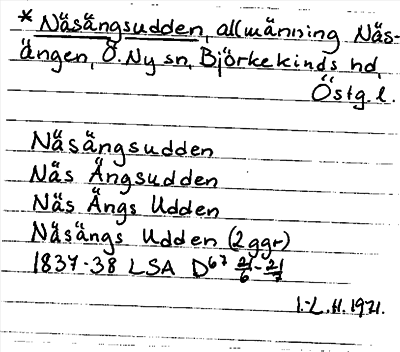 * Näsängsudden, allmänning Näs-
ängen, Ö. Ny sn, Björkekinds hd,
Östg. l.
Näsängsudden
Näs Ängsudden
Näs Ängs Udden
Näsängs Udden (2 ggr)
1837-38 LSA D⁶⁷ 2/6-21/7
I.-L. H. 1971.